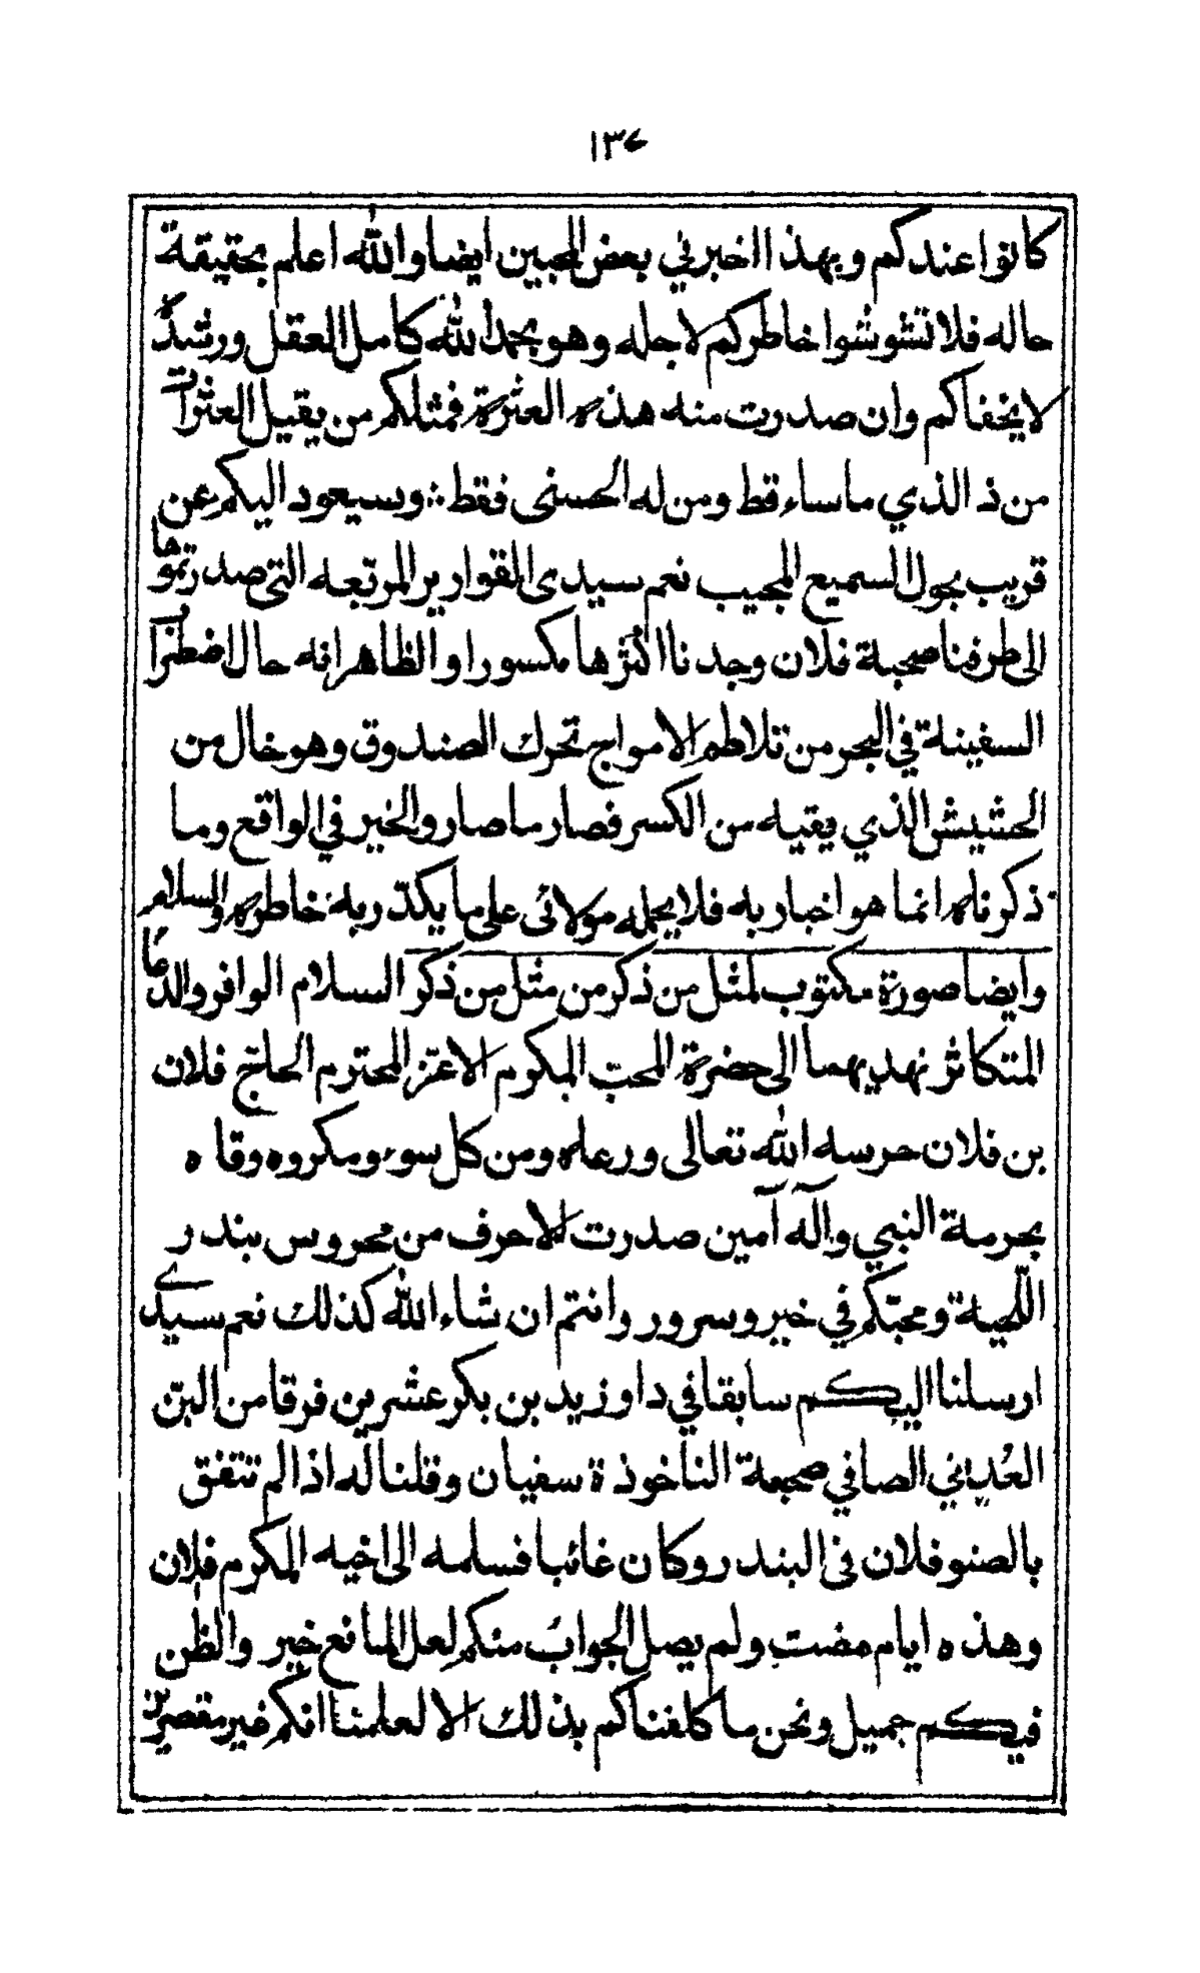 ١٣٤
كانوا عندكم وبهذا اخبرني بعض المحبين ايضا والله اعلم بحقيقة
حاله فلا تشوشوا خاطركم لاجله وهو بحمد الله كامل العقل ورشده
لا يخفاكم وان صدرت منه هذه العثرة فمثلكم من يقيل العثرات
من ذا الذي ماساء قط ومن له الحسنى فقط ؞ وسيعود اليكم عن
قريب بحول السميع المجيب نعم سيدى القوارير المربّعه التى صدرتموها
الى طرفنا صحبة فلان وجدنا اكثرها مكسورا والظاهر انه حال اضطراب
السفينة في البحر من تلاطم الامواج تحرك الصندوق وهو خال من
الحشيش الذي يقيه من الكسر فصار ما صار والخير في الواقع وما
ذكرناه انما هو اخبار به فلا يحمله مولائى على ما يكدّر به خاطره والسلام
وايضا صورة مكتوب لمثل من ذكر من مثل من ذكر السلام الوافر والدعا
المتكاثر نهديهما الى حضرة المحبّ المكرم الاعزّ المحترم الحاجّ فلان
بن فلان حرسه الله تعالى ورعاه ومن كل سوء ومكروه وقاه
بحرمة النبي وآله آمين صدرت الاحرف من محروس بندر
اللّحية ومحبّكم في خير وسرور وانتم ان شاء الله كذلك نعم سيدي
ارسلنا اليكم سابقا في داو زيد بن بكر عشرين فرقا من البنّ
العُديني الصافي صحبة الناخوذة سفيان وقلنا له اذا لم تتفق
بالصنو فلان فى البندر وكان غائبا فسلمه الى اخيه المكرم فلان
وهذه ايام مضت ولم يصل الجواب منكم لعل المانع خير والظن
فيكم جميل ونحن ما كلفناكم بذلك الا لعلمنا انكم غير مقصرين